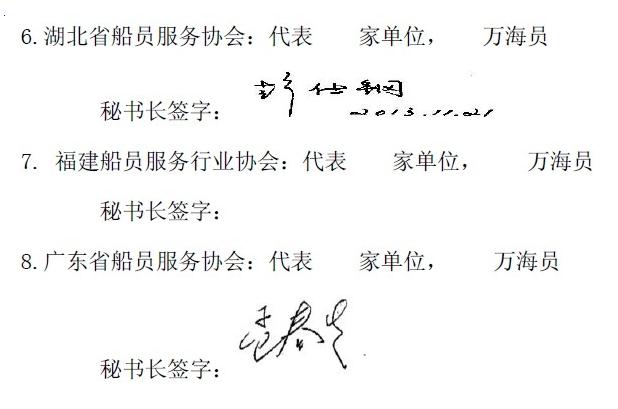 6.湖北省船员服务协会：代表 家单位， 万海员
秘书长签字： 彭仕钢
2013.11.21
7. 福建船员服务行业协会：代表 家单位， 万海员
秘书长签字：
8.广东省船员服务协会：代表 家单位， 万海员
秘书长签字：